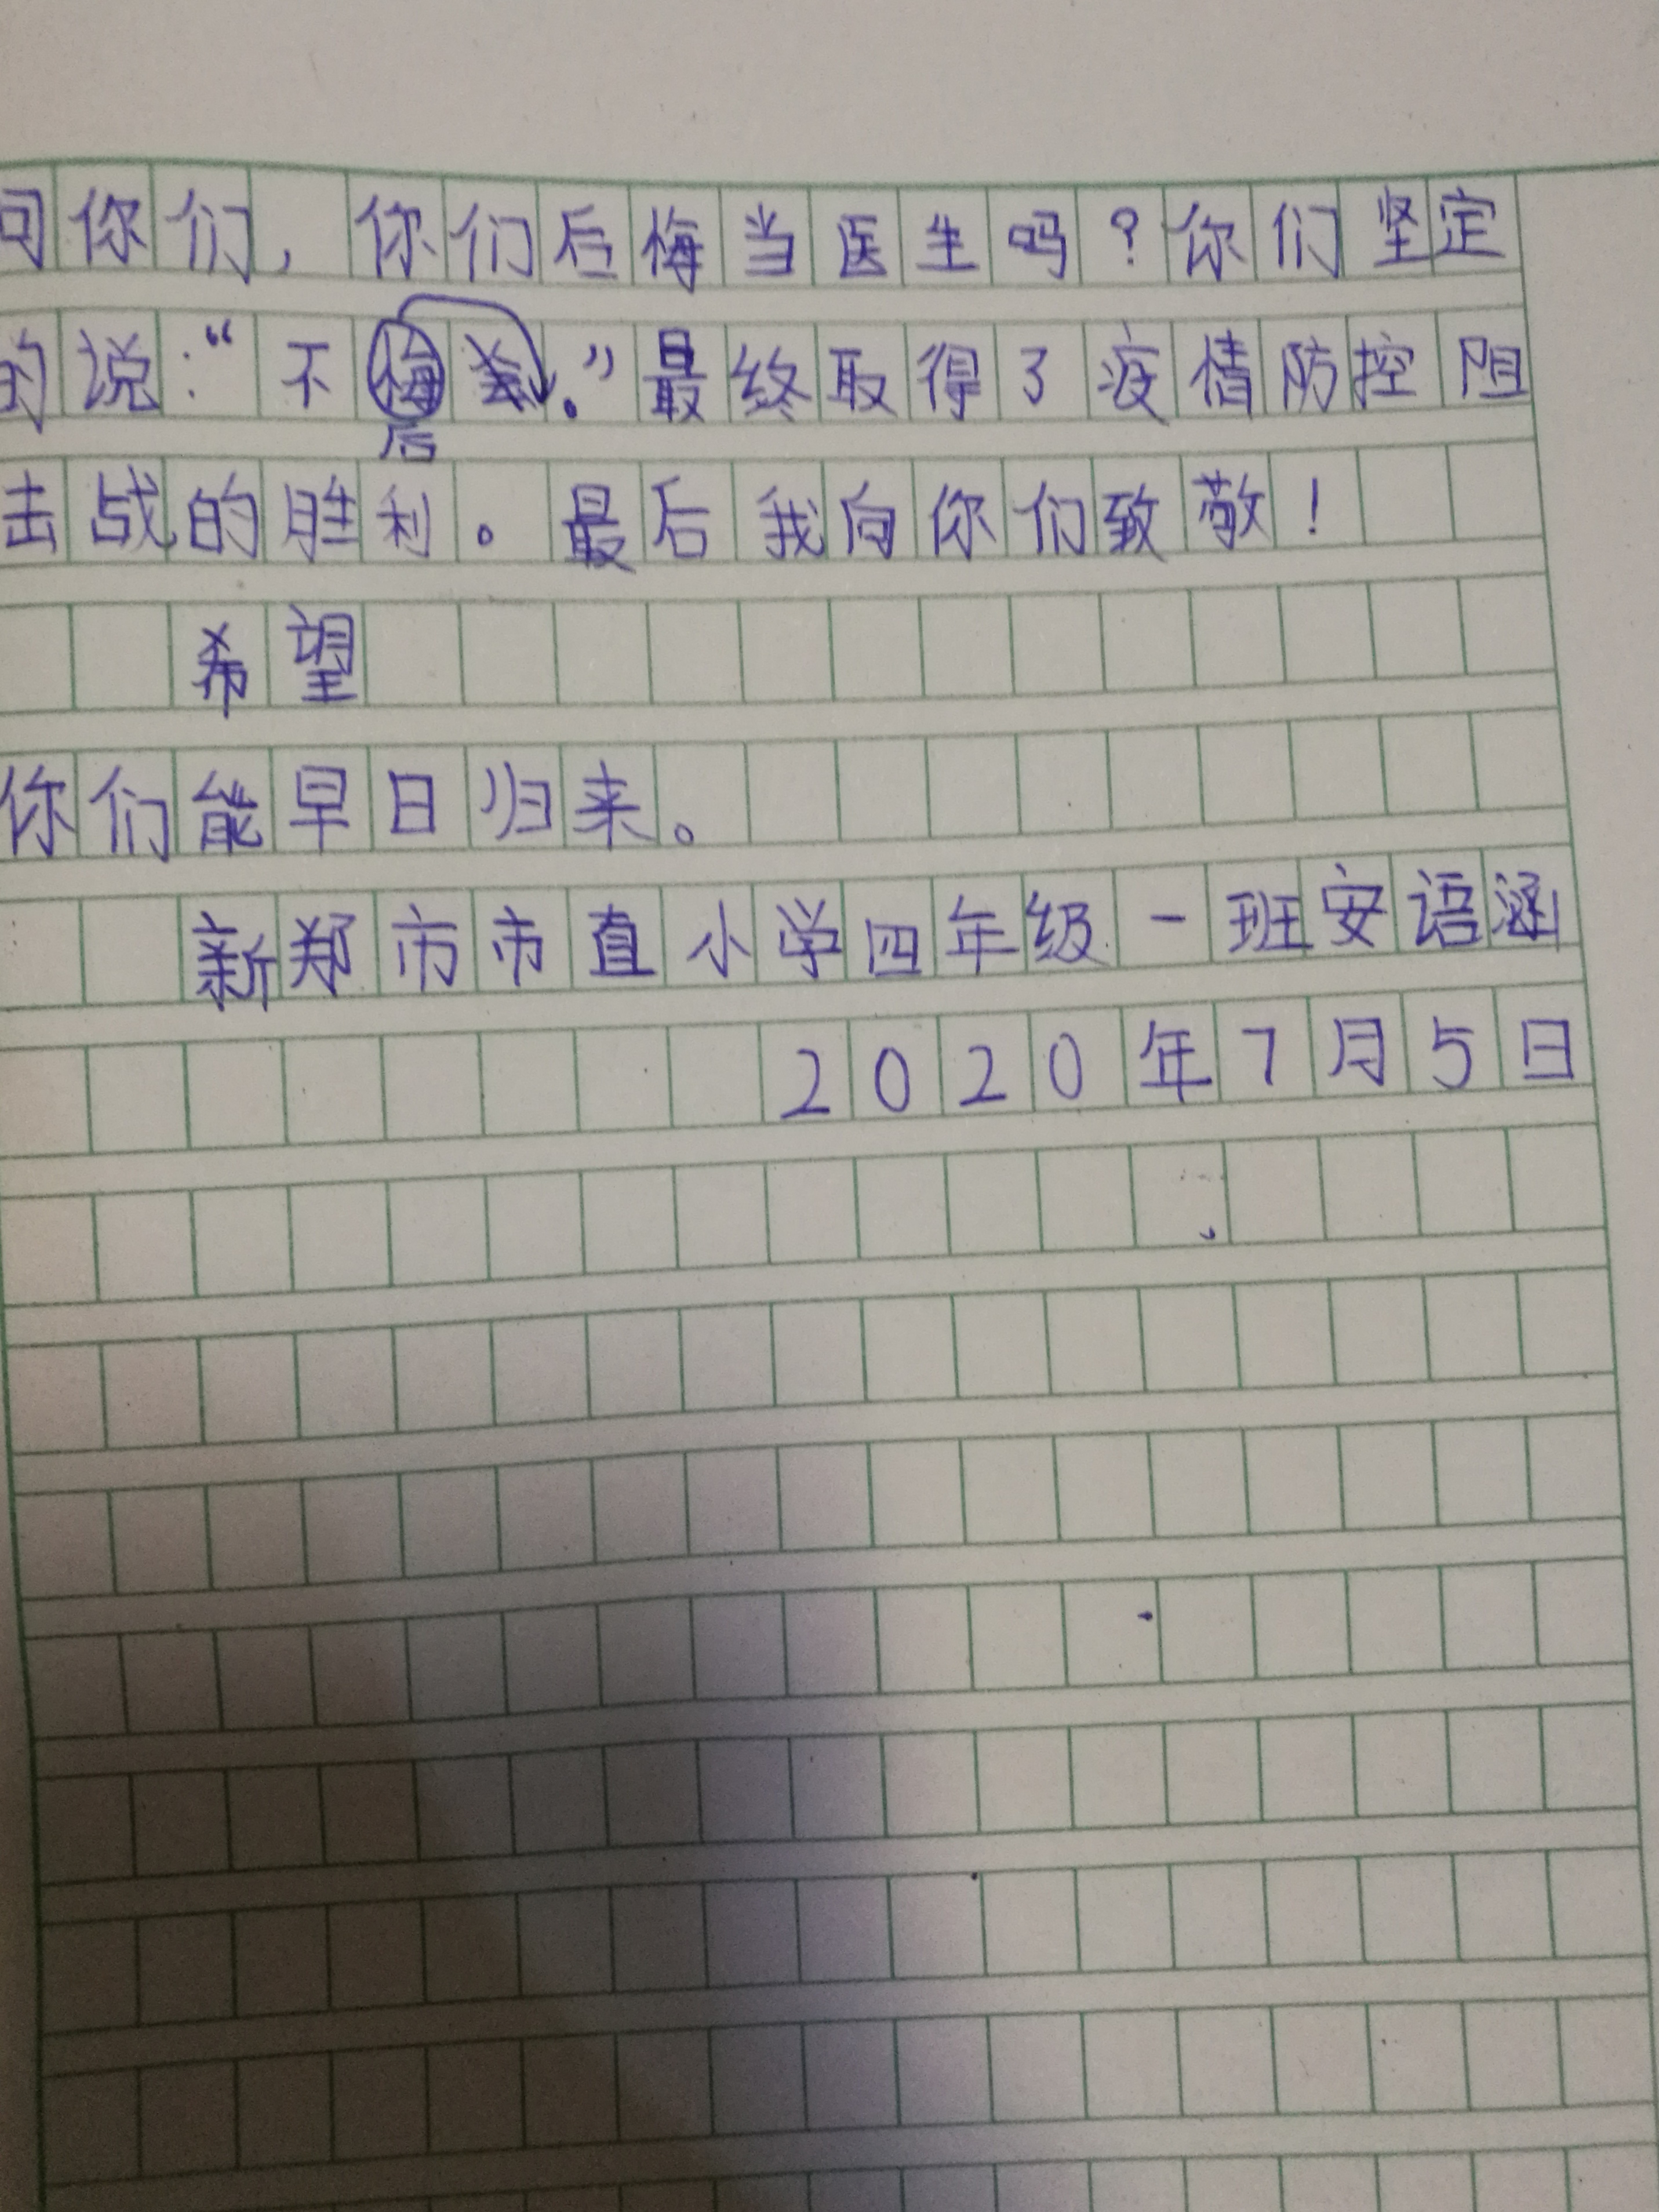 问你们，你们后悔当医生吗？你们坚定
的说：“不后悔。”最终取得了疫情防控阻
击战的胜利。最后我向你们致敬！
希望
你们能早日归来。
新郑市市直小学四年级一班安语涵
2020年7月5日